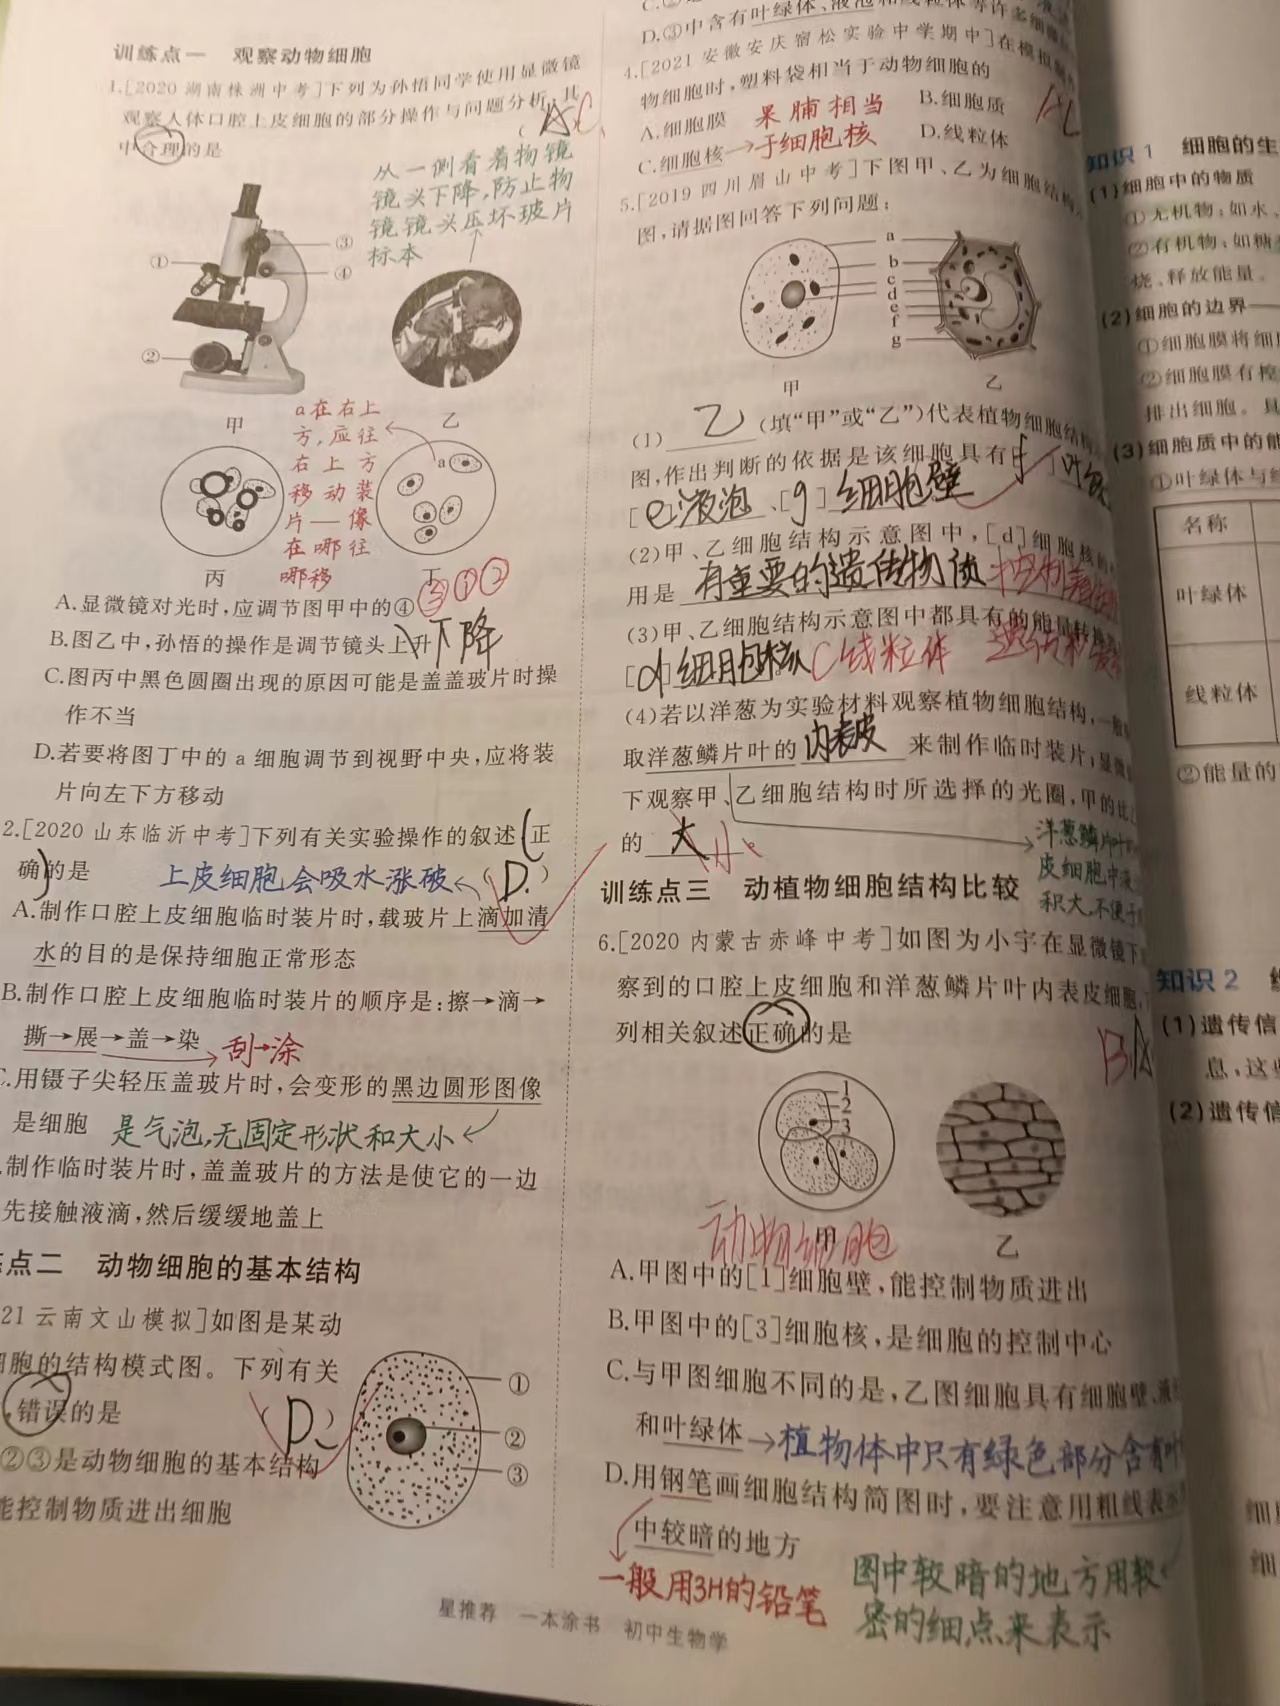 训练点一 观察动物细胞
1.[2020湖南株洲中考]下列为孙悟同学使用显微镜
观察人体口腔上皮细胞的部分操作与问题分析,其
中合理的是
C
从一侧看着物镜
镜头下降,防止物
镜镜头压坏玻片
标本
①
②
③
④
甲
乙
a在右上
方,应往
右上方
移动装
片—像
在哪往
哪移
a
丙
丁
③①②
A.显微镜对光时,应调节图甲中的④
B.图乙中,孙悟的操作是调节镜头上升
下降
C.图丙中黑色圆圈出现的原因可能是盖盖玻片时操
作不当
D.若要将图丁中的a细胞调节到视野中央,应将装
片向左下方移动
2.[2020山东临沂中考]下列有关实验操作的叙述正
确的是
上皮细胞会吸水涨破
(D.)
A.制作口腔上皮细胞临时装片时,载玻片上滴加清
水的目的是保持细胞正常形态
B.制作口腔上皮细胞临时装片的顺序是:擦→滴→
撕→展→盖→染
刮→涂
C.用镊子尖轻压盖玻片时,会变形的黑边圆形图像
是细胞
是气泡,无固定形状和大小
.制作临时装片时,盖盖玻片的方法是使它的一边
先接触液滴,然后缓缓地盖上
点二 动物细胞的基本结构
21云南文山模拟]如图是某动
胞的结构模式图。下列有关
错误的是
(D
②③是动物细胞的基本结构
能控制物质进出细胞
①
②
③
D.③中含有叶绿体、液泡和线粒体等许多细
4.[2021安徽安庆宿松实验中学期中]在模拟
物细胞时,塑料袋相当于动物细胞的
A.细胞膜
B.细胞质
C.细胞核
D.线粒体
果脯相当
于细胞核
5.[2019四川眉山中考]下图甲、乙为细胞结构
图,请据图回答下列问题:
a
b
c
d
e
f
g
甲
乙
(1) 乙 (填“甲”或“乙”)代表植物细胞结构
图,作出判断的依据是该细胞具有
[e]液泡、[g]细胞壁
(2)甲、乙细胞结构示意图中,[d]细胞核的
用是 有重要的遗传物质
(3)甲、乙细胞结构示意图中都具有的能量转换
[d]细胞核
C线粒体
(4)若以洋葱为实验材料观察植物细胞结构,一般
取洋葱鳞片叶的 内表皮 来制作临时装片;显微
下观察甲、乙细胞结构时所选择的光圈,甲的比乙
的 大
小。
洋葱鳞片叶
皮细胞中液
积大,不便于
训练点三 动植物细胞结构比较
6.[2020内蒙古赤峰中考]如图为小宇在显微镜下
察到的口腔上皮细胞和洋葱鳞片叶内表皮细胞,下
列相关叙述正确的是
B
1
2
3
甲
乙
动物细胞
A.甲图中的[1]细胞壁,能控制物质进出
B.甲图中的[3]细胞核,是细胞的控制中心
C.与甲图细胞不同的是,乙图细胞具有细胞壁、液
和叶绿体
植物体中只有绿色部分含有叶
D.用钢笔画细胞结构简图时,要注意用粗线表
中较暗的地方
一般用3H的铅笔
图中较暗的地方用较
密的细点来表示
星推荐 一本涂书 初中生物学
知识1 细胞的生
(1)细胞中的物质
①无机物:如水、
②有机物:如糖
烧、释放能量。
(2)细胞的边界—
①细胞膜将细
②细胞膜有控
排出细胞。
(3)细胞质中的能
①叶绿体与线
名称
叶绿体
线粒体
②能量的
知识2
(1)遗传信
息,这
(2)遗传信
细
细